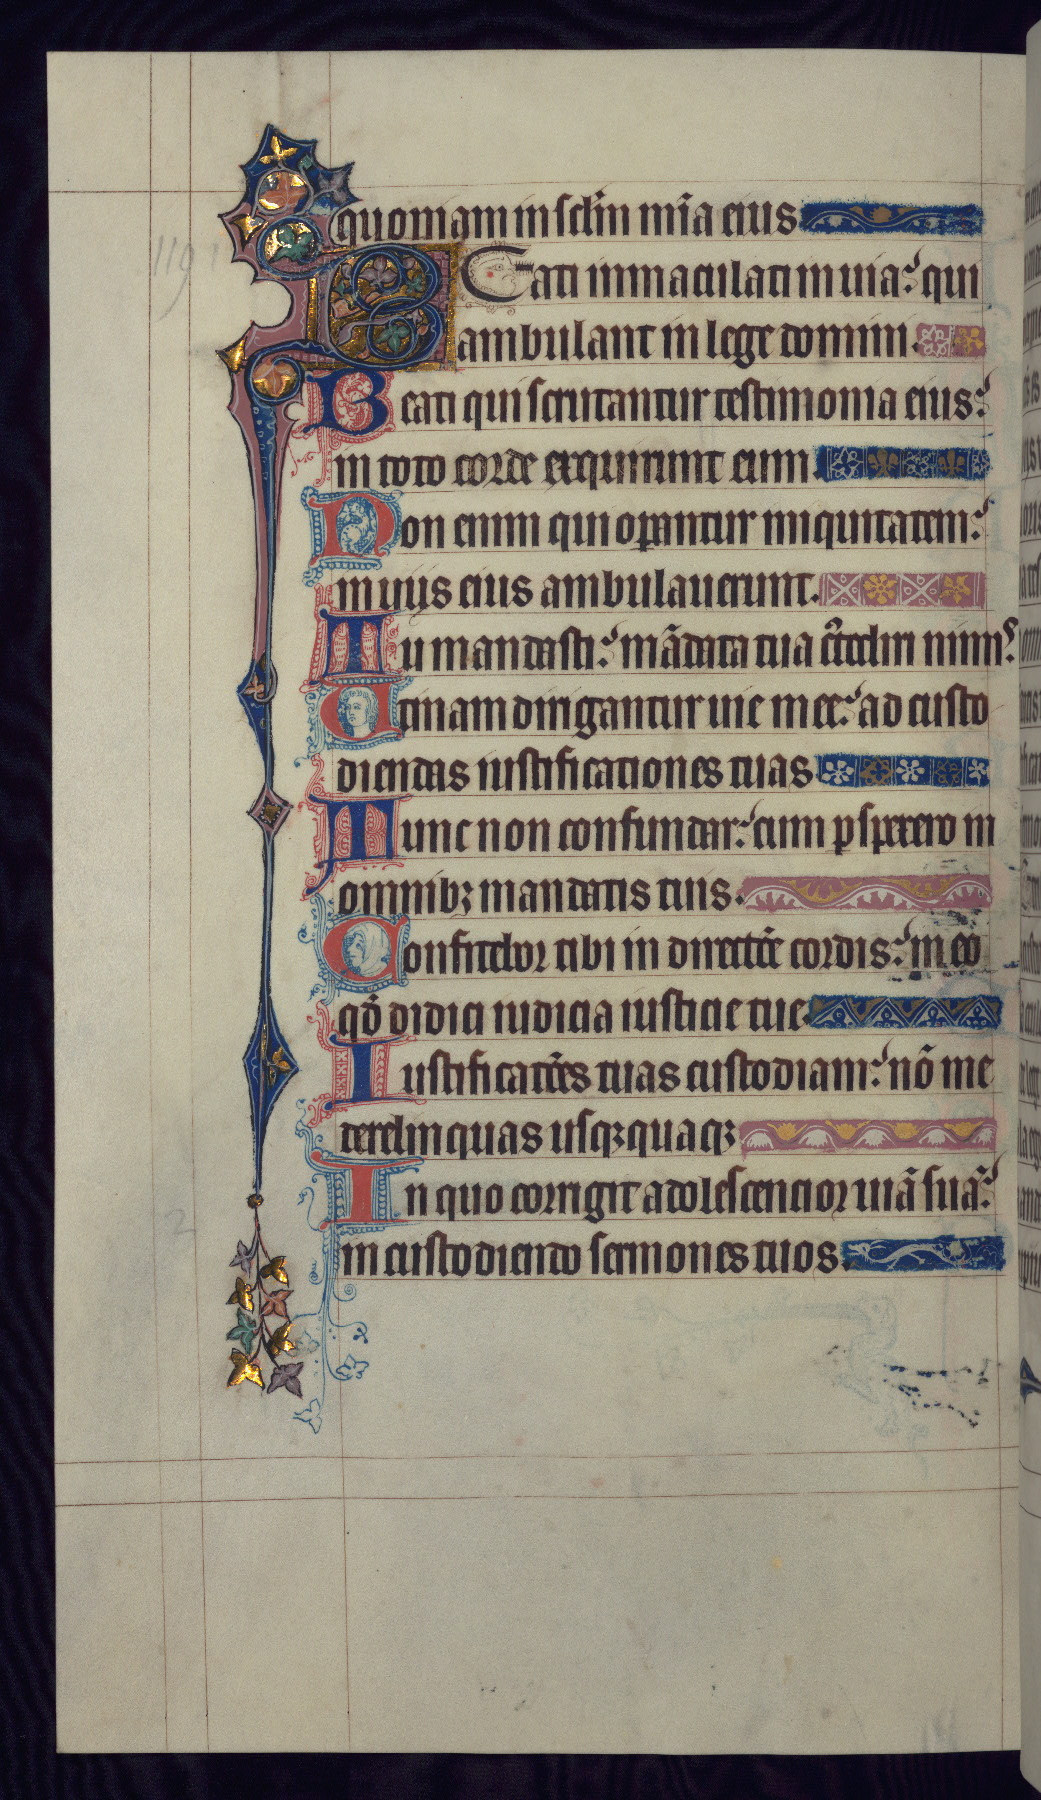 quoniam in sclm̄ mīa eius
119
BEati immaculati in uia: qui
ambulant in lege domini.
Beati qui scrutantur testimonia eius:
in toto corde exquirunt eum.
Non enim qui opantur iniquitatem:
in uijs eius ambulauerunt.
Tu mandasti: mādata tua c̄todiri nimis:
Utinam dirigantur uie mee: ad custo
diendas iustificationes tuas
Tunc non confundar: cum pspexero in
omnibꝫ mandatis tuis.
Confitebor tibi in directōe cordis: in eo
qđ didici iudicia iusticie tue.
Iustificatōes tuas custodiam: nō me
derelinquas usqꝫquaqꝫ
In quo corrigit adolescencior uiā suā:
2
in custodiendo sermones tuos.